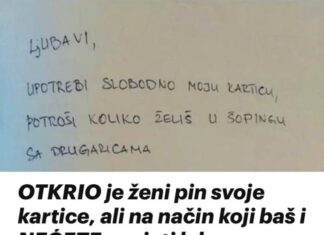 LjUBAVI,
UPOTREBI SLOBODNO MOJU KARTICU,
POTROŠI KOLIKO ŽELIŠ U ŠOPINGU
SA DRUGARICAMA
OTKRIO je ženi pin svoje
kartice, ali na način koji baš i
NEĆETE